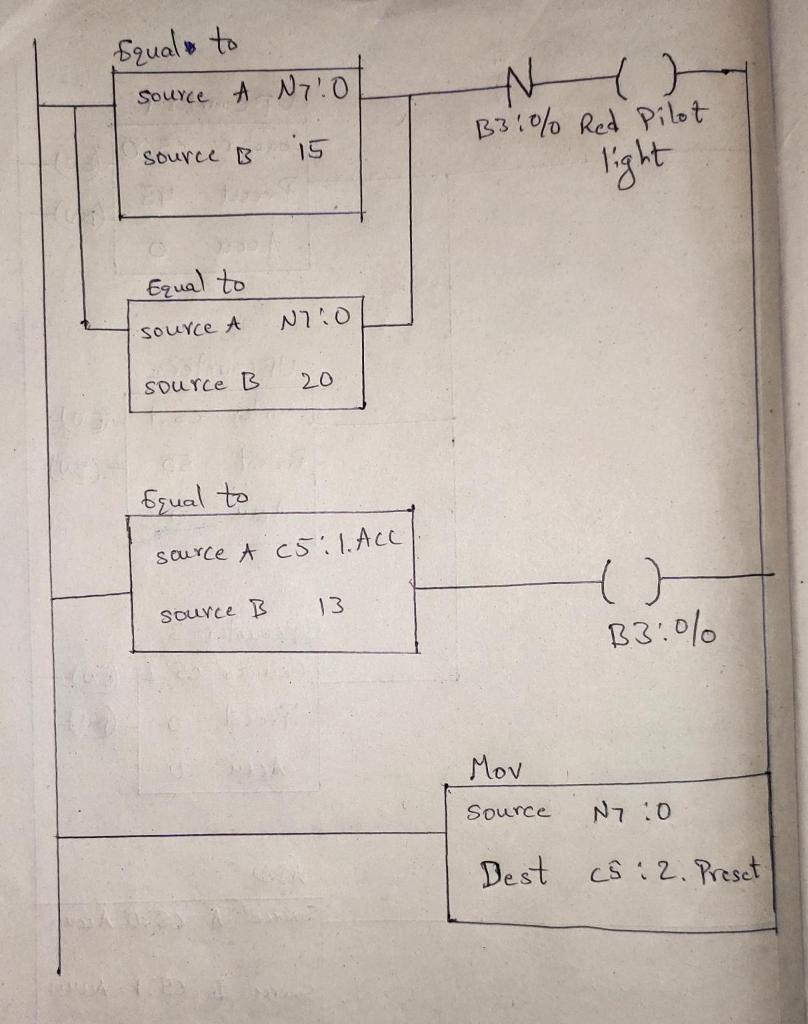 Equal to
source A N7:0
source B 15
B3:0/0 Red Pilot
light
Equal to
source A N7:0
source B 20
Equal to
source A C5:1.Acc
source B 13
B3:0/0
Mov
Source N7:0
Dest C5:2.Preset